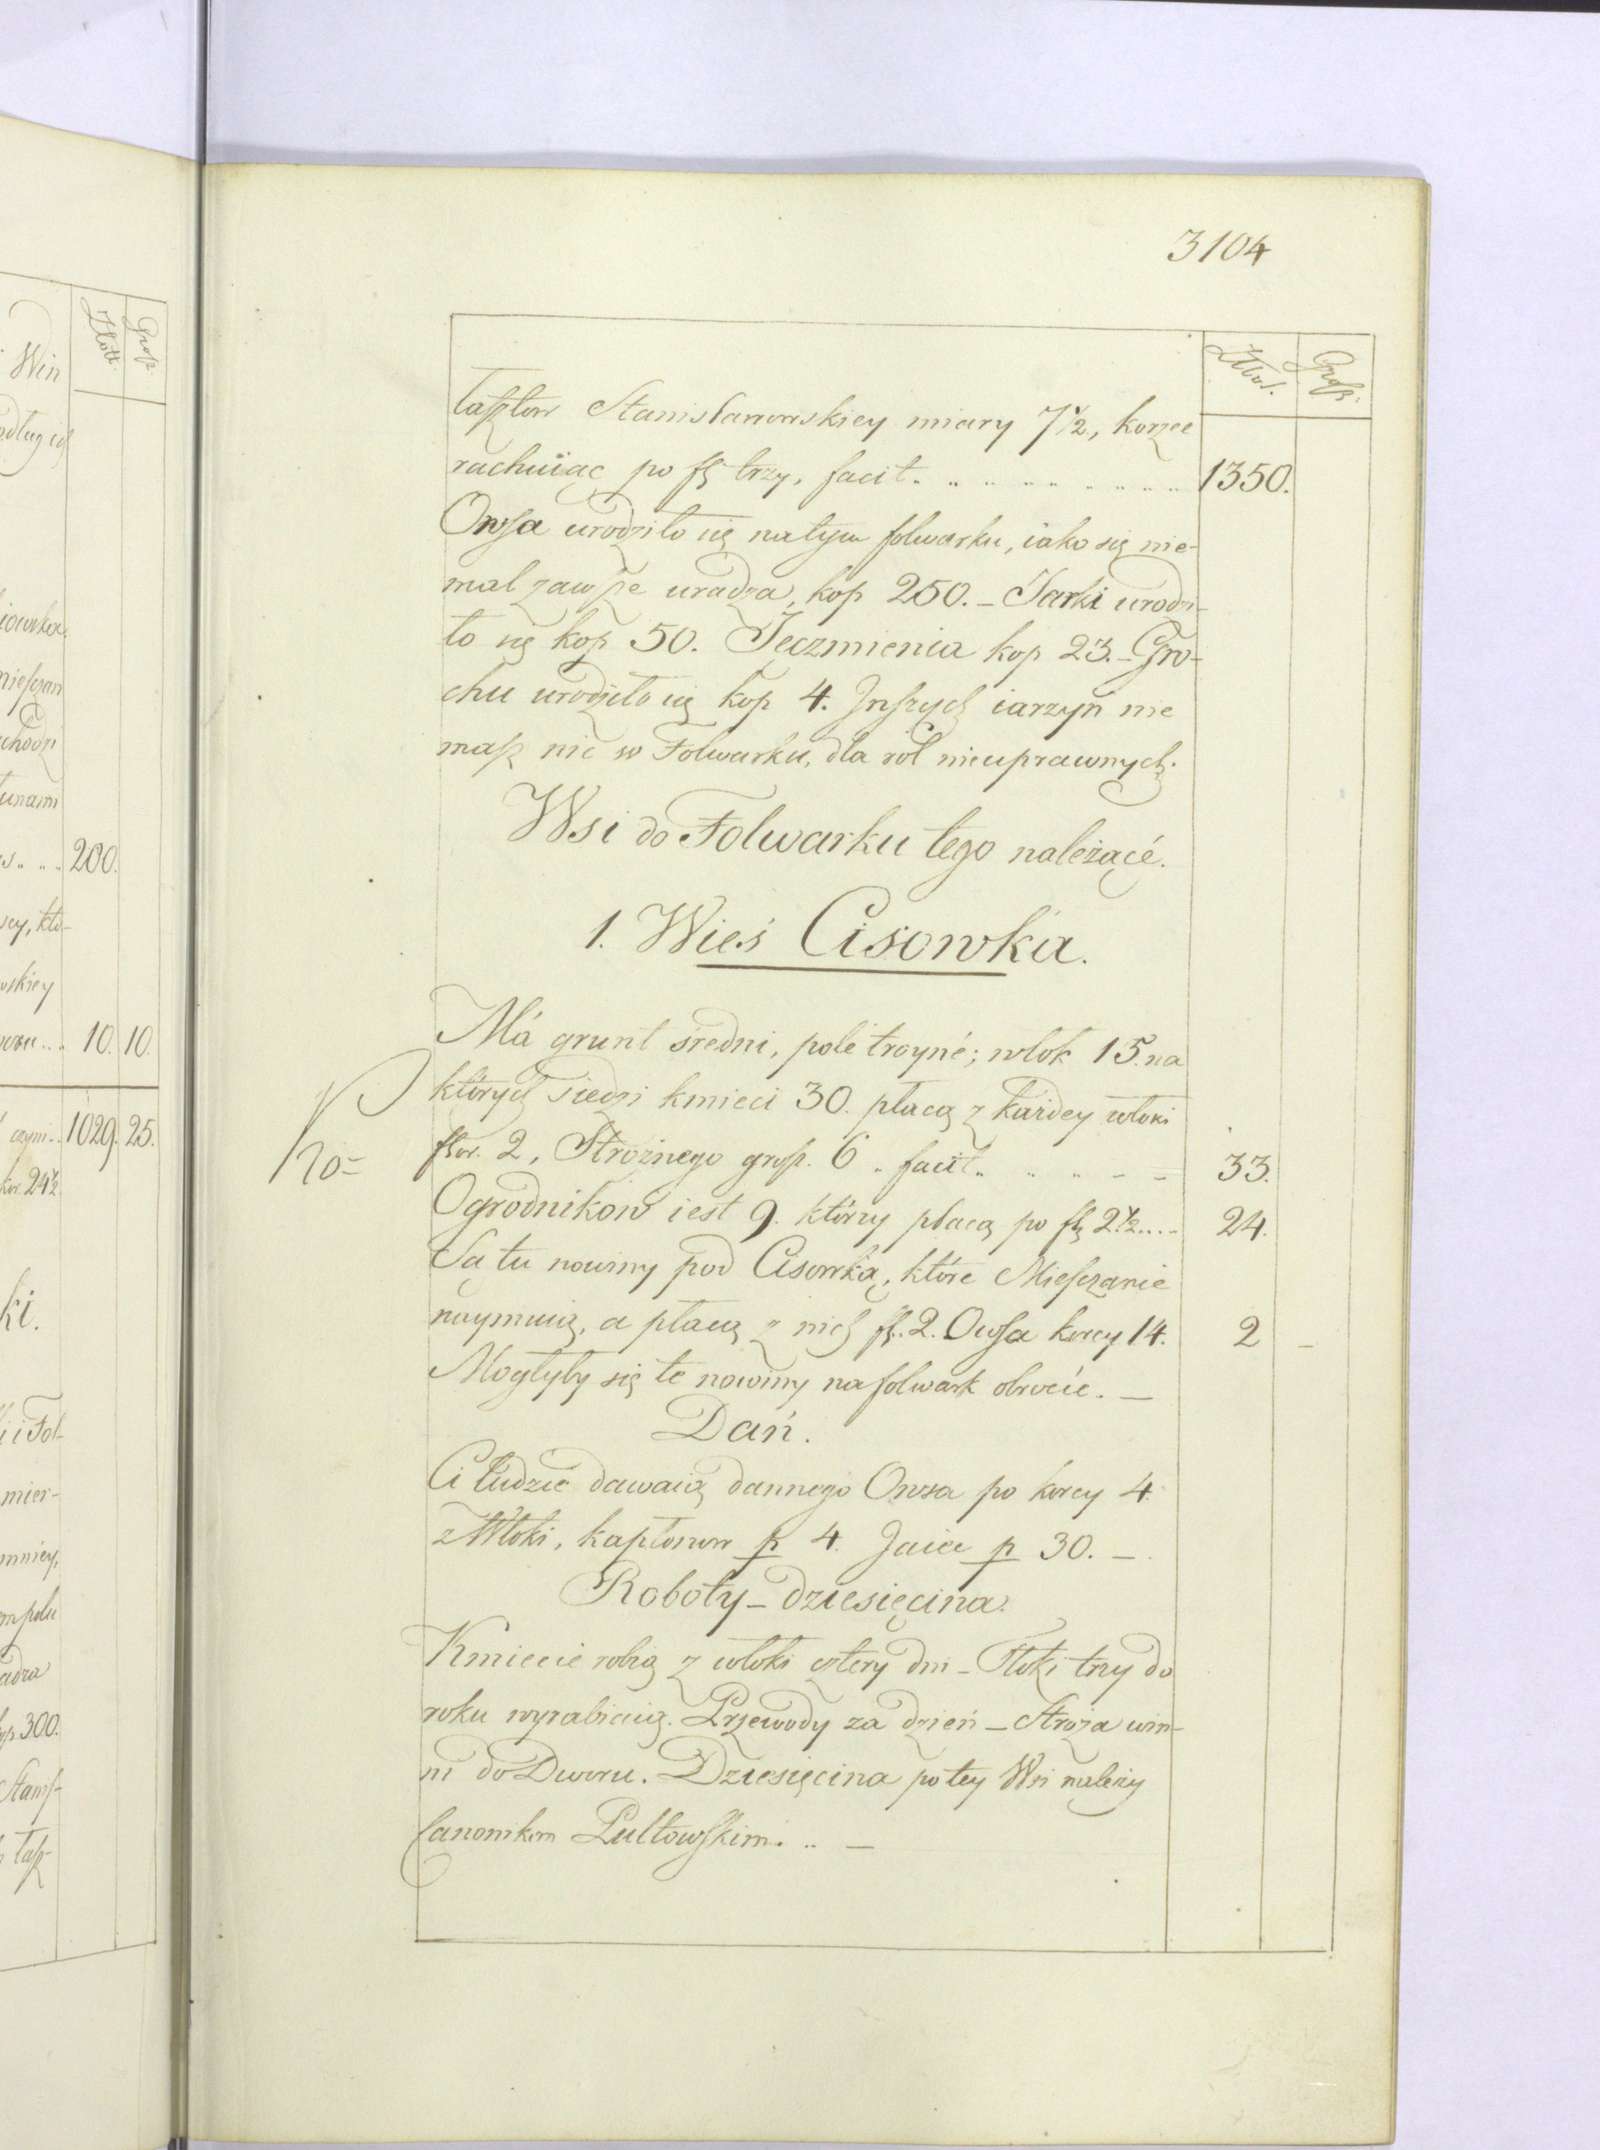 3104
Złot. Grosz.
łasztow Stanisławowskiey miary 7½, korzec
rachuiąc po fl. trzy, facit. . . . . . . . . 1350.
Owsa urodziło się na tym folwarku, iako się nie-
mal zawsze uradza, kop 250. – Jarki urodzi-
ło się kop 50. Jęczmienia kop 23. – Gro-
chu urodziło się kop 4. Inszych iarzyn nie
masz nic w Folwarku, dla rol nieuprawnych.
Wsi do Folwarku tego należącé.
1. Wieś Cisowka.
Má grunt średni, polé troyné; włok 15. na
których siedzi kmieci 30. płacą z każdey włoki
flor. 2, Strożnego grosz. 6. facit. . . . – – 33.
Ogrodnikow iest 9. którzy płacą po fl. 2½ .... 24.
Są tu nowiny pod Cisowką, które Miesczanie
naymuią, a płacą z nich fl. 2. Owsa korcy 14. 2 –
Mogłyby się te nowiny na folwark obrocic. –
Dań.
Ci ludzie dawaią dannego Owsa po korcy 4.
z Włoki, kapłonow p 4. Jaiec p 30. –
Roboty – dziesięcina.
Kmiecie robią z włoki cztery dni – Tłoki trzy do
roku wyrabiaią. Przewody za dzień – Stroża win-
ni do Dworu. Dziesięcina po tey Wsi należy
Canonikom Pułtowskim. .. –
Złott. Grosz.
Win
200.
10. 10.
1029. 25.
24½
ki.
kop 300.